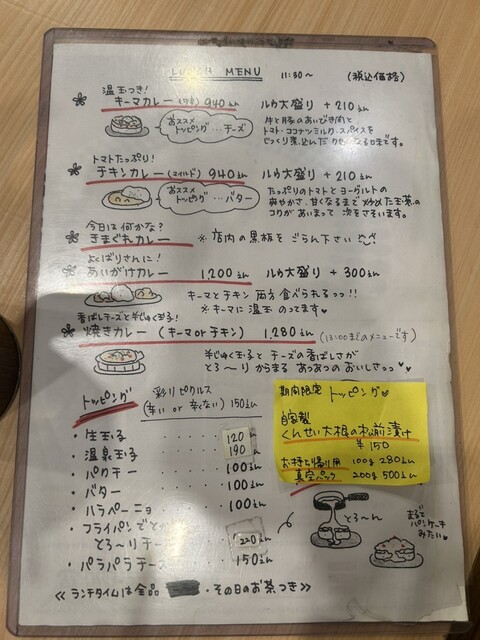 LUNCH MENU 11:30~ (税込価格)
温玉つき!
キーマカレー (辛口) 940えん ルウ大盛り +210えん
おススメトッピング…チーズ
牛と豚のあいびき肉と
トマト・ココナツミルク・スパイスを
じっくり煮込んだ
トマトたっぷり!
チキンカレー (マイルド) 940えん ルウ大盛り +210えん
おススメトッピング…バター
たっぷりのトマトとヨーグルトの
爽やかさ、甘くなるまで炒めた玉葱の
コクがあいまって 次をさそいます。
今日は何かな?
きまぐれカレー ※店内の黒板をごらん下さい
よくばりさんに!
あいがけカレー 1,200えん ルウ大盛り +300えん
キーマとチキン両方食べられるっっ!!
※キーマに温玉のってます♥
香ばしチーズと半じゅく玉子!
焼きカレー (キーマorチキン) 1,280えん (13:00までのメニューです)
半じゅく玉子と チーズの香ばしさが
とろ〜り からまる あつあつの おいしさっっ♥♥
トッピング
彩りピクルス
(辛い or 辛くない) 150えん
・生玉子 ・・・・ 120えん
・温泉玉子 ・・・ 190えん
・パクチー ・・・・ 100えん
・バター ・・・・ 100えん
・ハラペーニョ ・・・ 100えん
・フライパンでとか
とろ〜りチー 220えん
・パラパラチーズ 150えん
期間限定 トッピング♡
自家製
くんせい大根の松前漬け
¥150
お持ち帰り用 100g 280えん
真空パック 200g 500えん
とろ〜ん
まるで
パンケーキ
みたい♥
≪ランチタイムは全品 ・その日のお茶つき≫